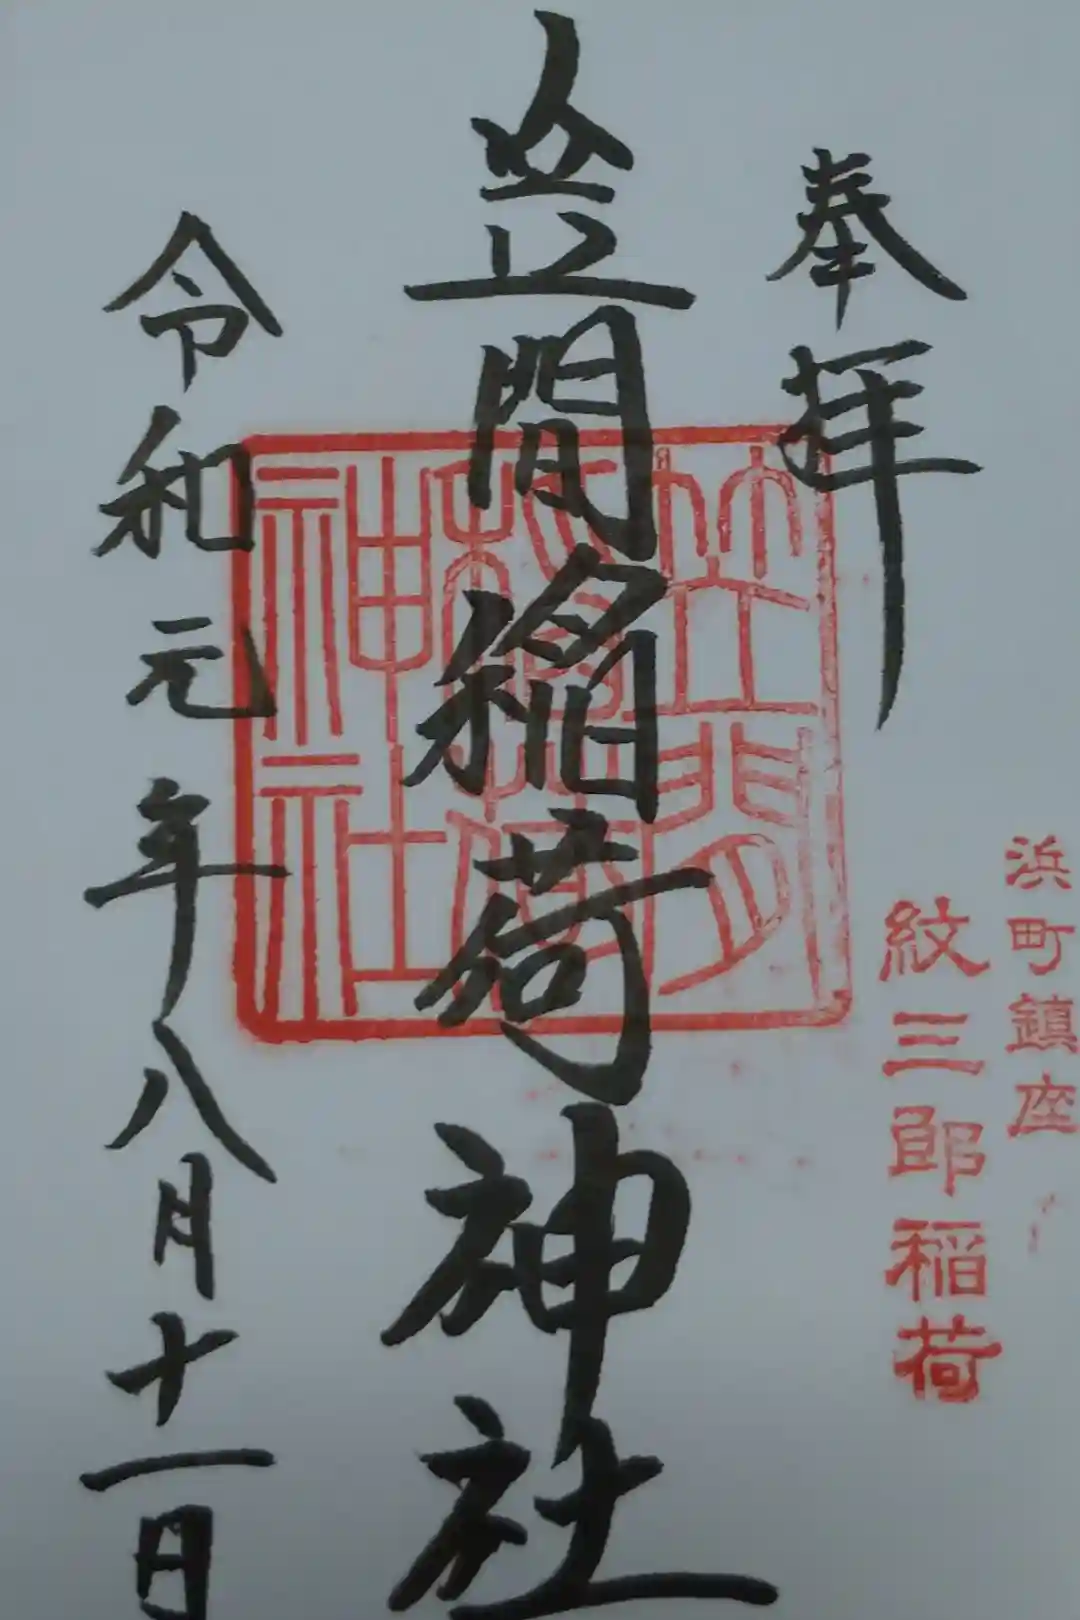 奉拝
浜町鎮座
紋三郎稲荷
笠間稲荷神社
笠間
稲荷
神社
令和元年八月十一日